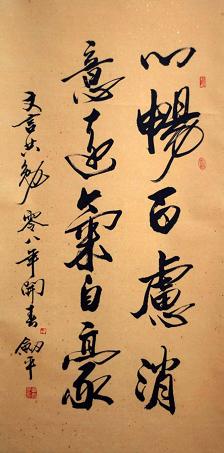 心暢百慮消
意遠氣自豪
文言共勉 零八年開春 劍平